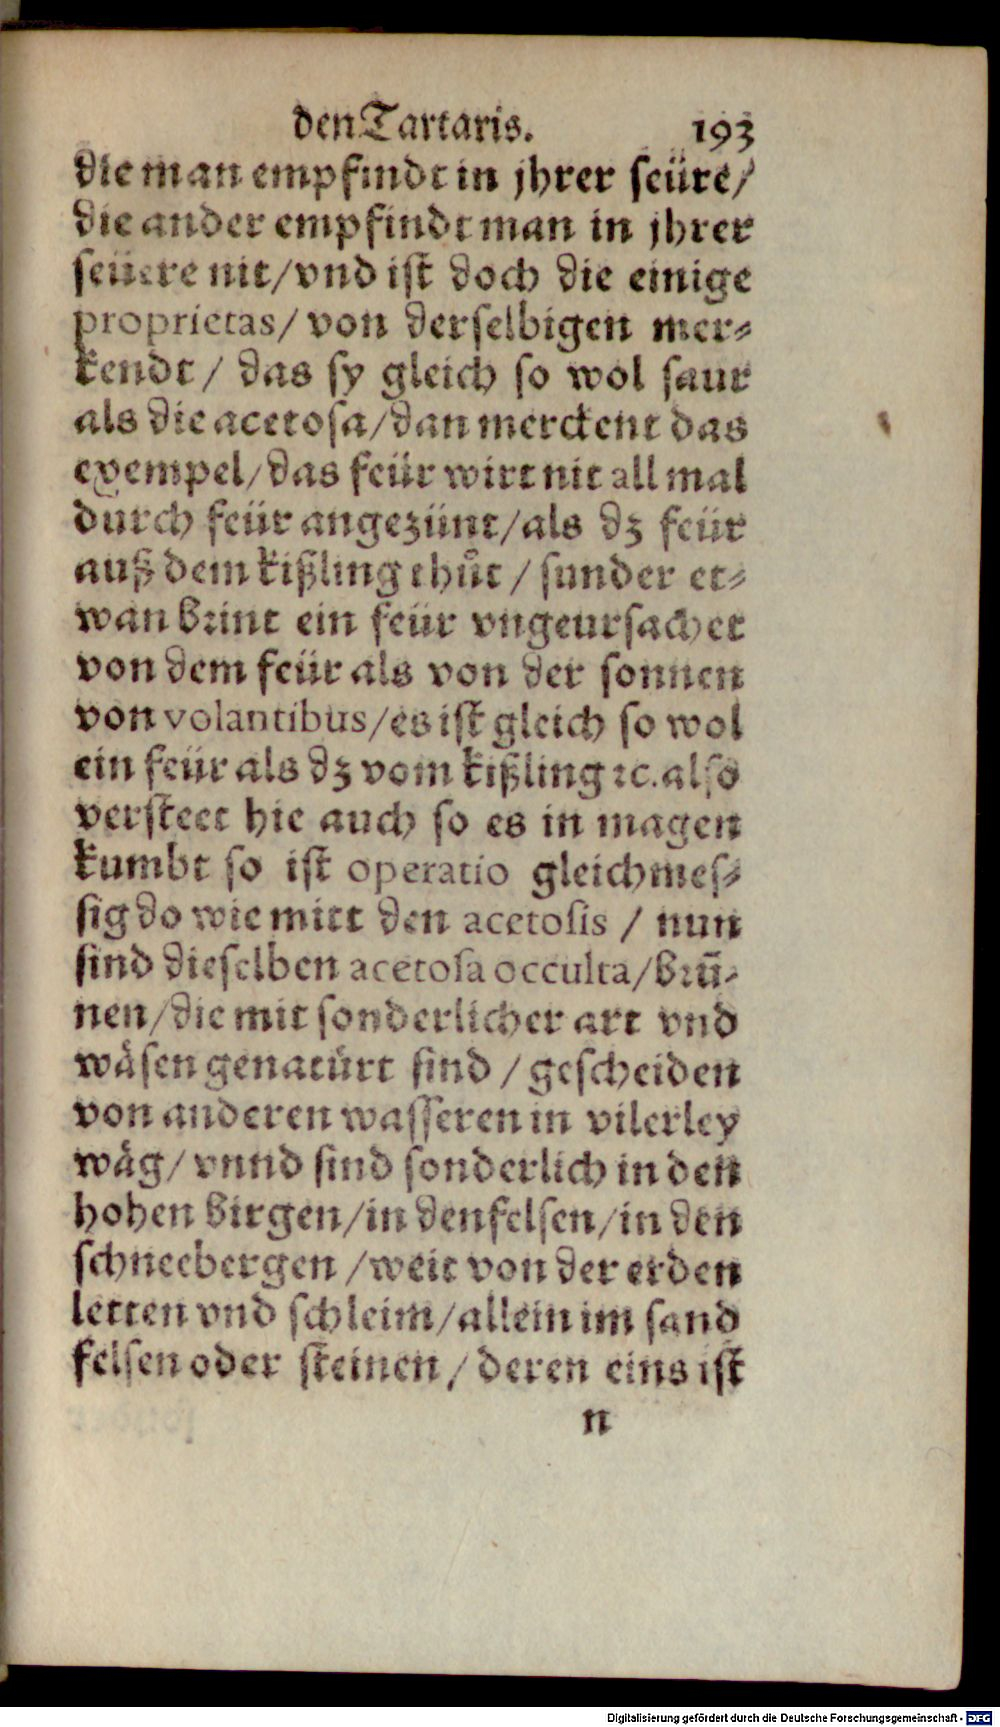 den Tartaris. 193
die man empfindt in jhrer seüre/
die ander empfindt man in jhrer
seüere nit/vnd ist doch die einige
proprietas/ von derselbigen mer⸗
kendt / das sy gleich so wol saur
als die acetosa/dan merckent das
exempel/das feür wirt nit all mal
durch feür angezünt/als dz feür
auß dem kißling thůt / sunder et⸗
wan brint ein feür vngeursachet
von dem feür als von der sonnen
von volantibus/es ist gleich so wol
ein feür als dz vom kißling ꝛc. also
versteet hie auch so es in magen
kumbt so ist operatio gleichmes⸗
sig do wie mitt den acetosis / nun
sind dieselben acetosa occulta/brū⸗
nen/die mit sonderlicher art vnd
wäsen genatürt sind / gescheiden
von anderen wasseren in vilerley
wäg/ vnnd sind sonderlich in den
hohen birgen/in den felsen/in den
schneebergen /weit von der erden
letten vnd schleim/allein im sand
felsen oder steinen / deren eins ist
n
Digitalisierung gefördert durch die Deutsche Forschungsgemeinschaft - DFG